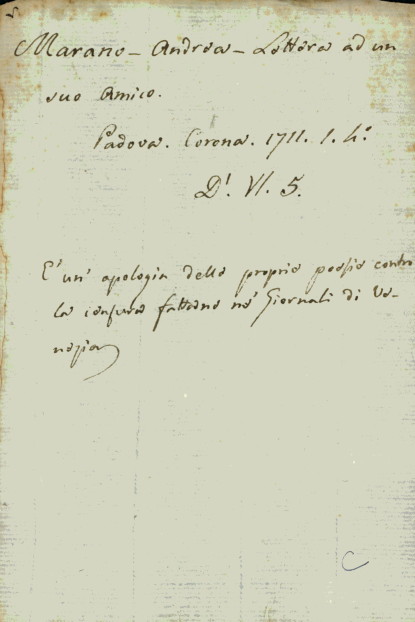 Marano - Andrea - Lettera ad un
suo Amico.
Padova. Corona. 1711. 1. 4.º
D'. VI. 5.
E' un' apologia delle proprie poesie contro
la censura fattone ne' Giornali di Ve-
nezia
C